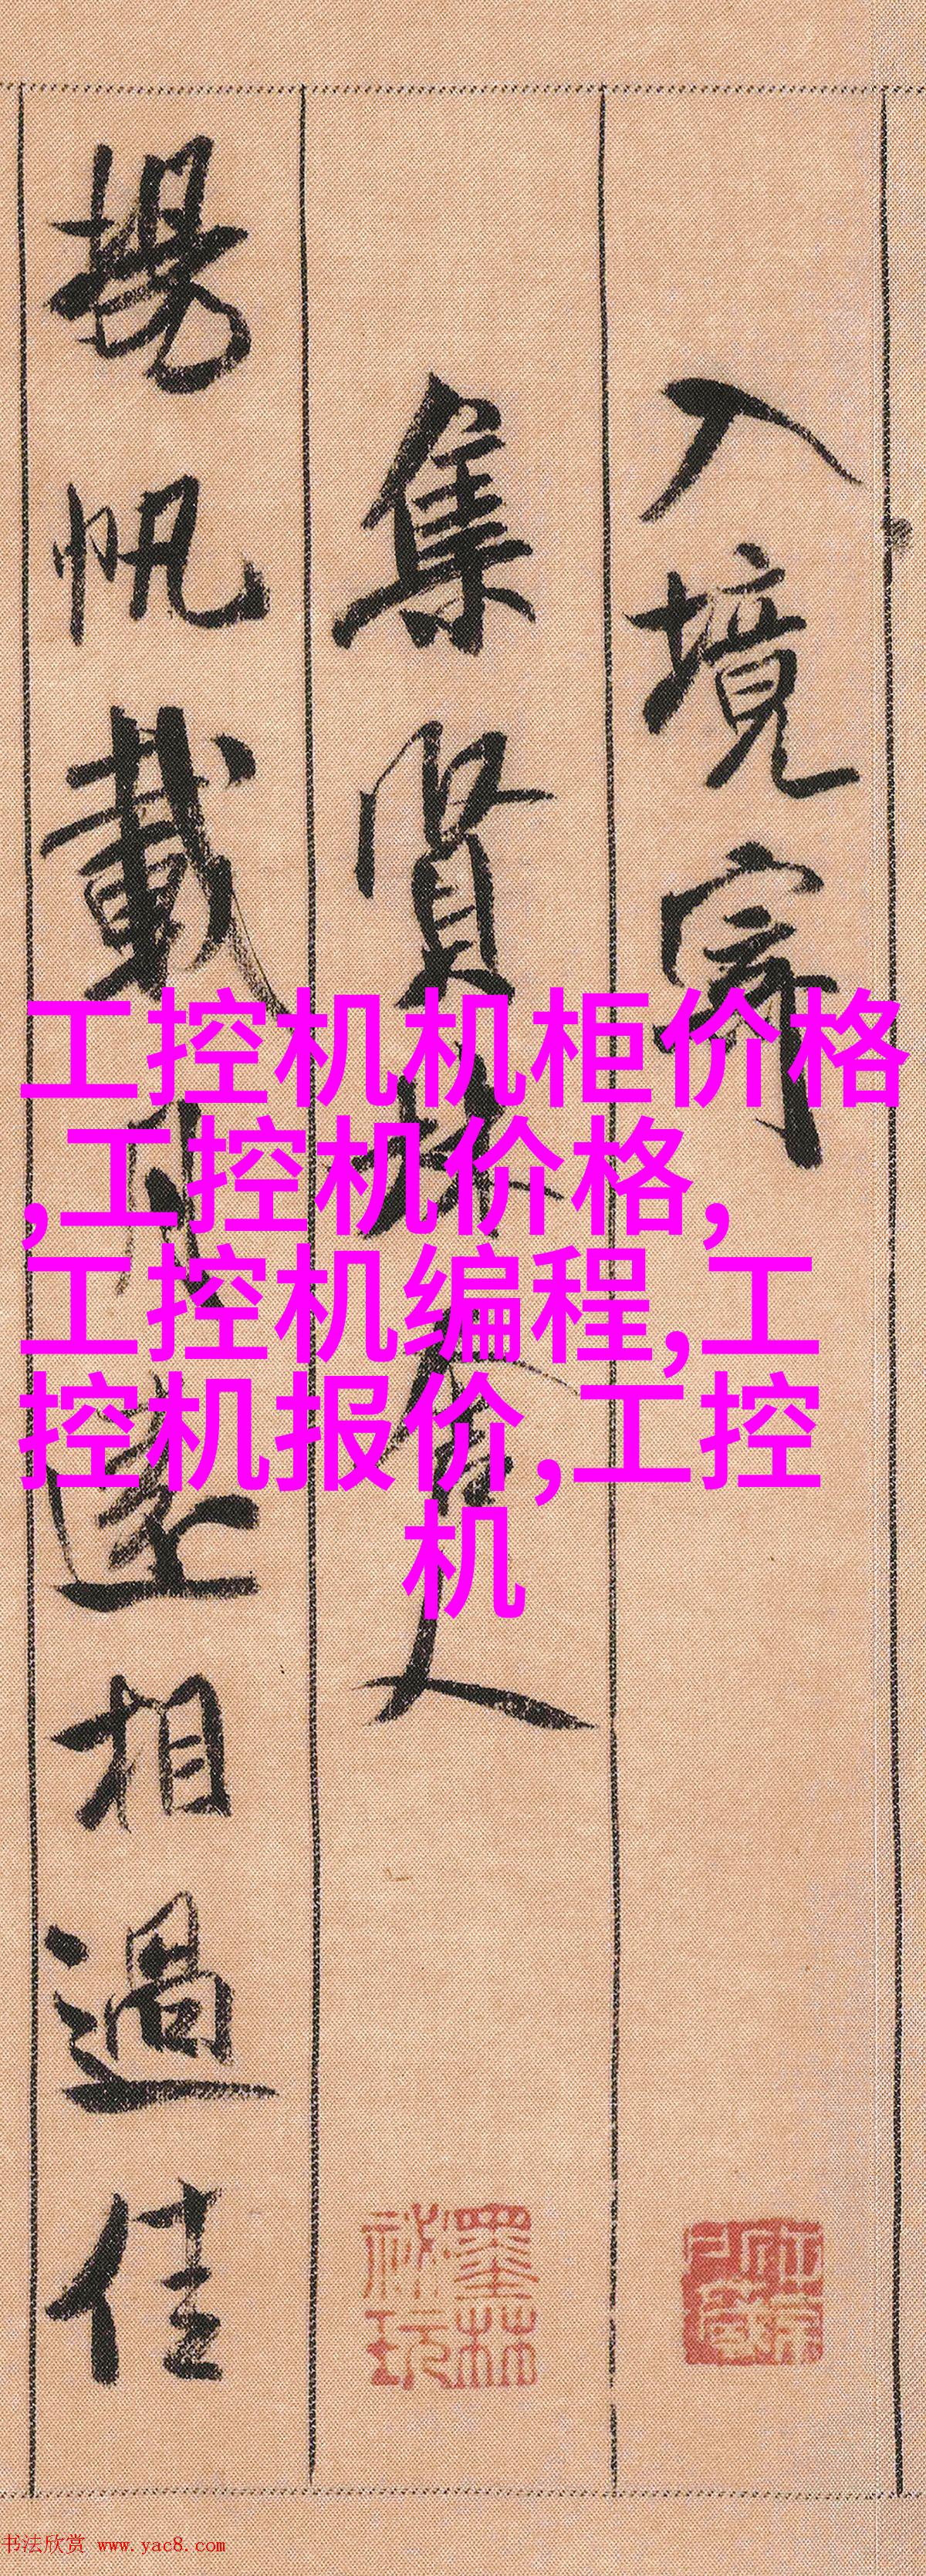 入境寄
集賢林舍人
揚帆載月遠相過佳
工控机机柜价格
,工控机价格,
工控机编程,工
控机报价,工控
机
墨林
祕玩
书法欣赏 www.yac8.com